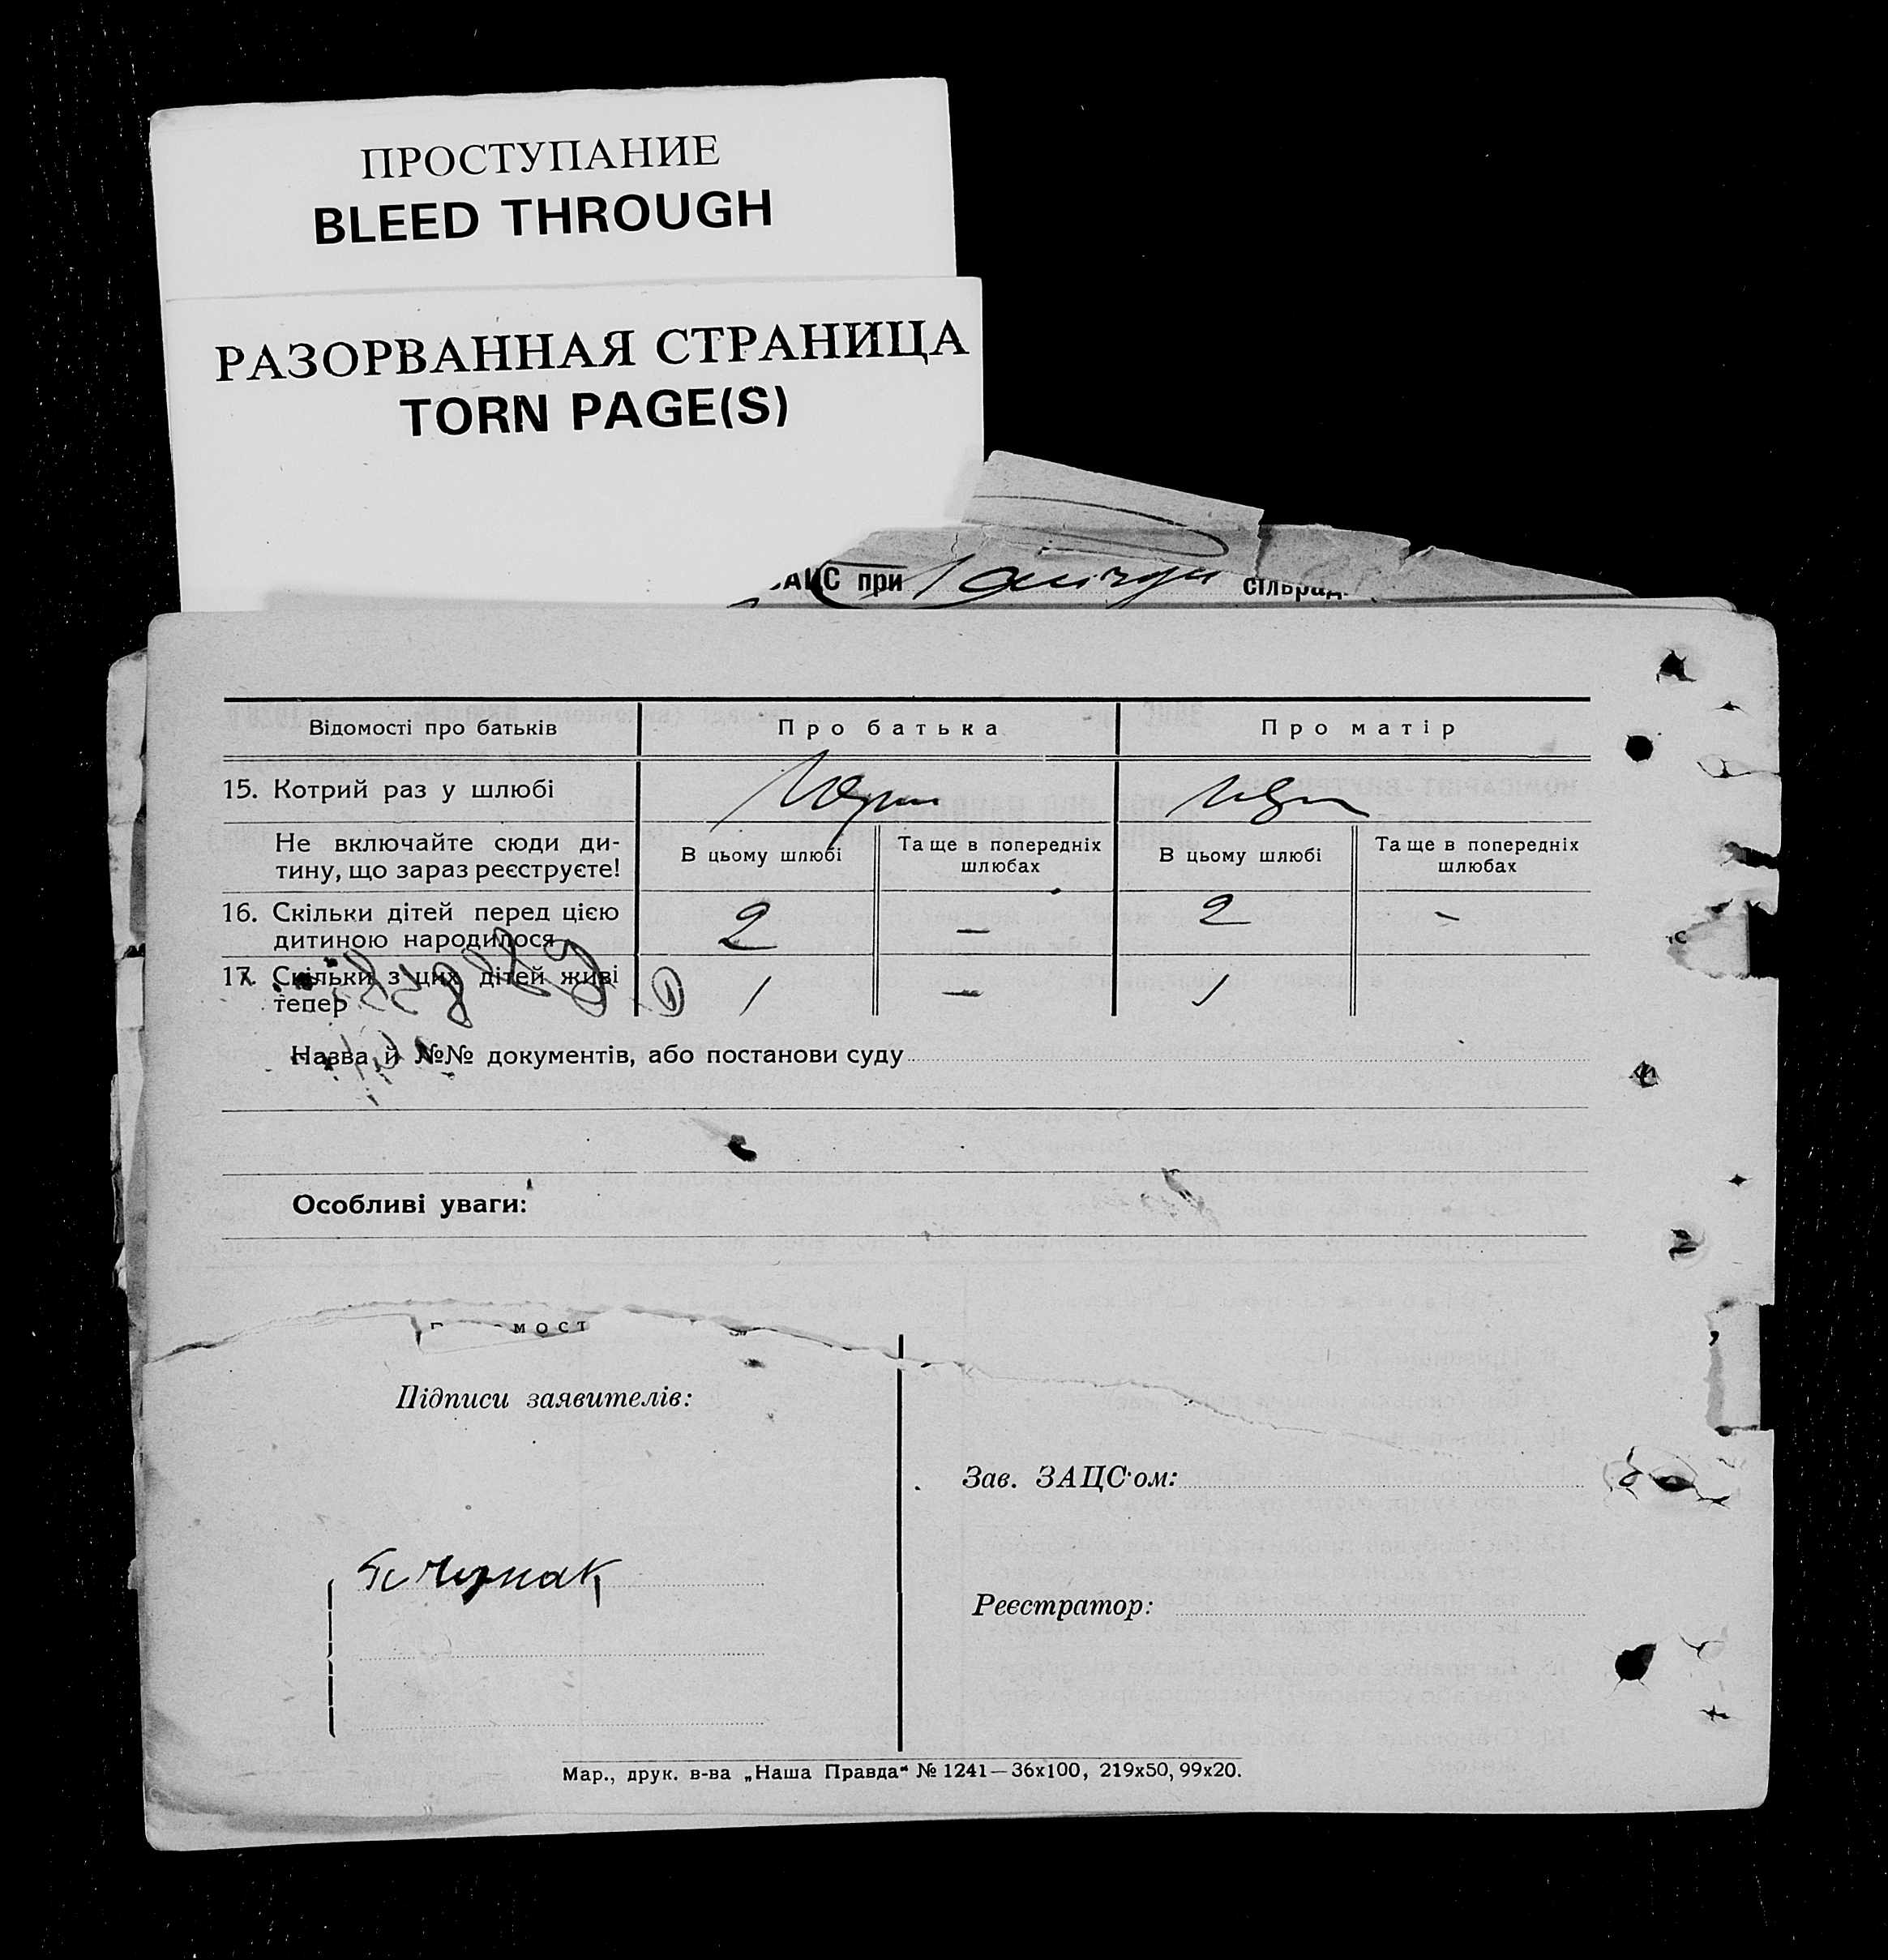 ПРОСТУПАНИЕ
BLEED THROUGH
РАЗОРВАННАЯ СТРАНИЦА
TORN PAGE(S)
АЦС при сільрад.
Відомості про батьків Про батька Про матір
15. Котрий раз у шлюбі
Не включайте сюди ди-
тину, що зараз реєструєте!
В цьому шлюбі
Та ще в попередніх
шлюбах
В цьому шлюбі
Та ще в попередніх
шлюбах
16. Скільки дітей перед цією
дитиною народилося
2 — 2 -
17. Скільки з цих дітей живі
тепер
1 — 1
Назва й №№ документів, або постанови суду
Особливі уваги:
мост
Підписи заявителів:
Зав. ЗАЦС'ом:
Реєстратор:
Мар., друк. в-ва „Наша Правда" № 1241—36х100, 219х50, 99х20.